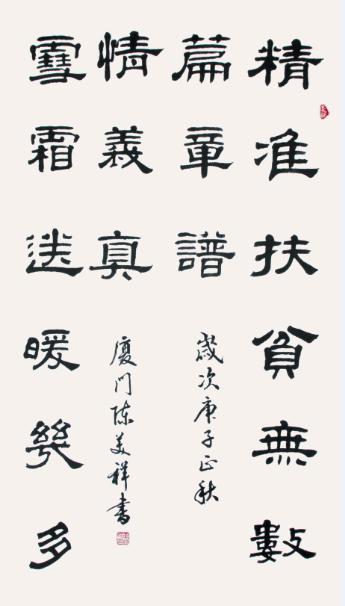 精准扶貧無數
篇章譜
雪霜送暖幾多
情義真
歲次庚子正秋
廈門陳美祥書